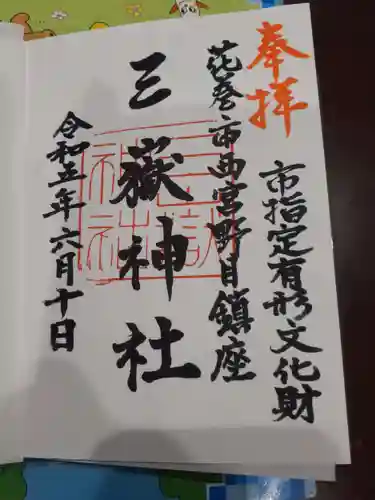 奉拝
市指定有形文化財
花巻市西宮野目鎮座
三嶽神社
令和五年六月十日